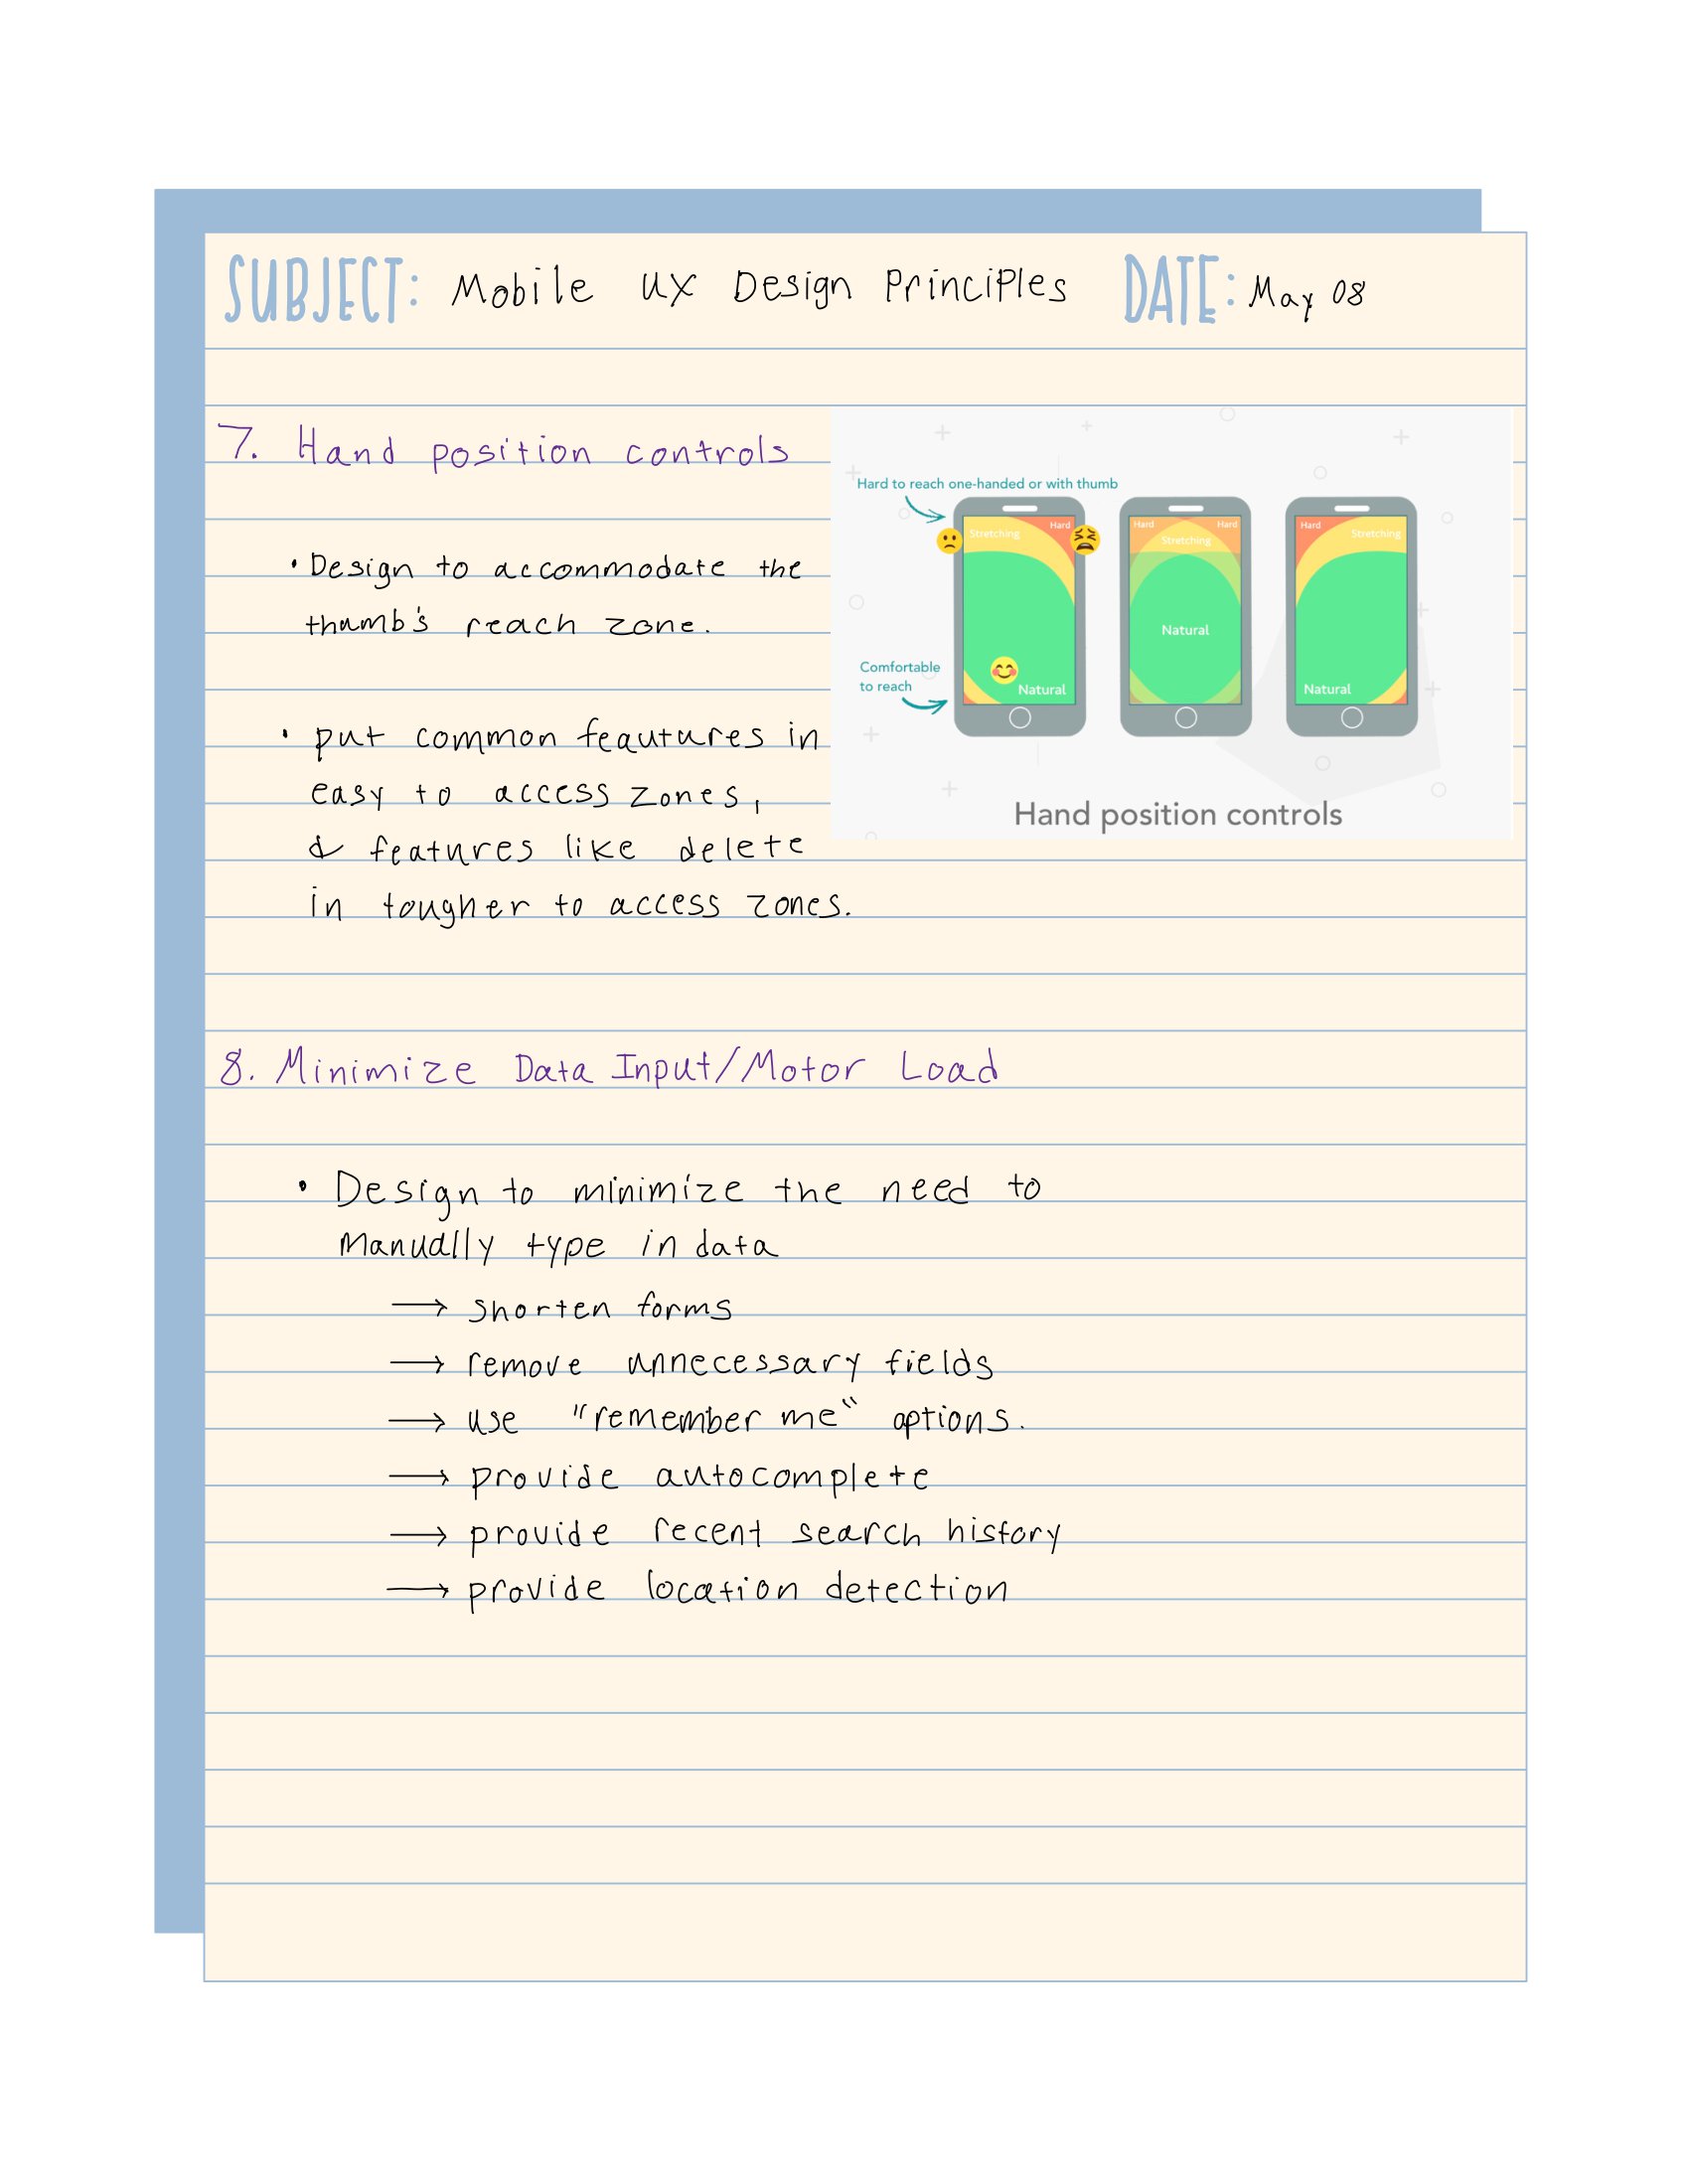 SUBJECT: Mobile UX Design Principles DATE: May 08
7. Hand position controls
• Design to accommodate the
thumb's reach zone.
• put common feautures in
easy to access zones,
& features like delete
in tougher to access zones.
Hard to reach one-handed or with thumb
Stretching Hard
Hard Hard
Stretching
Hard Stretching
Natural
Comfortable
to reach
Natural
Natural
Hand position controls
8. Minimize Data Input/Motor Load
• Design to minimize the need to
manually type in data
→ shorten forms
→ remove unnecessary fields
→ use "remember me" options.
→ provide autocomplete
→ provide recent search history
→ provide location detection